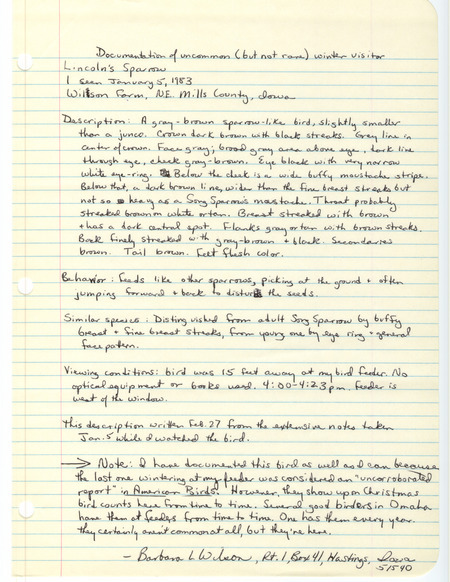 Documentation of uncommon (but not rare) winter visitor
Lincoln's Sparrow
1 seen January 5, 1983
Willson Farm, N.E. Mills County, Iowa
Description: A gray-brown sparrow-like bird, slightly smaller
than a junco. Crown dark brown with black streaks. Grey line in
center of crown. Face gray; broad gray area above eye, dark line
through eye, cheek gray-brown. Eye black with very narrow
white eye-ring. Below the cheek is a wide buffy moustache stripe.
Below that, a dark brown line, wider than the fine breast streaks but
not so heavy as a Song Sparrow's moustache. Throat probably
streaked brown on white or tan. Breast streaked with brown
+ has a dark central spot. Flanks gray or tan with brown streaks.
Back finely streaked with gray-brown + black. Secondaries
brown. Tail brown. Feet flesh color.
Behavior: Feeds like other sparrows, picking at the ground + often
jumping forward + back to disturb the seeds.
Similar species: Distinguished from adult Song Sparrow by buffy
breast + fine breast streaks, from young one by eye ring + general
face pattern.
Viewing conditions: bird was 15 feet away at my bird feeder. No
optical equipment or books used. 4:00-4:23 pm. Feeder is
west of the window.
This description written Feb. 27 from the extensive notes taken
Jan. 5 while I watched the bird.
→ Note: I have documented this bird as well as I can because
the last one wintering at my feeder was considered an "uncorroborated
report" in American Birds. However, they show up on Christmas
bird counts here from time to time. Several good birders in Omaha
have them at feeders from time to time. One has them every year.
they certainly aren't common at all, but they're here.
- Barbara L Wilson, Rt. 1, Box 41, Hastings, Iowa
51540